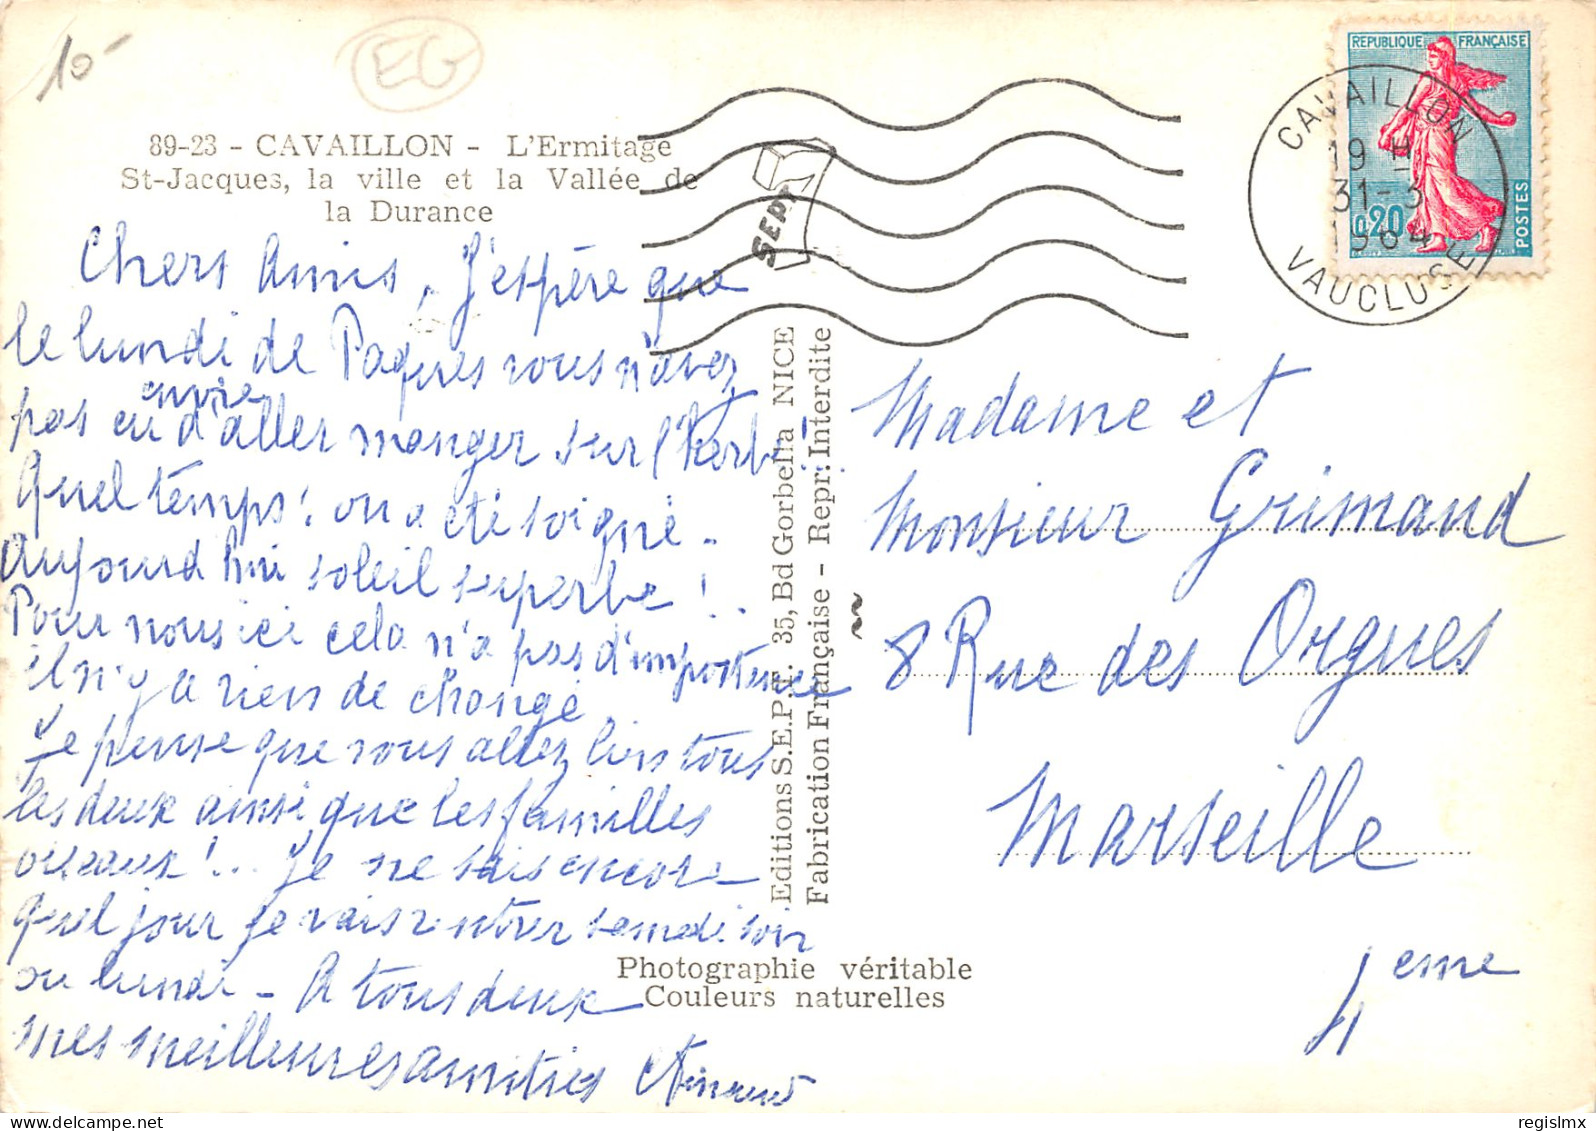 10-
EG
89-23 - CAVAILLON - L'Ermitage
St-Jacques, la ville et la Vallée de
la Durance
Chers Amis, J'espère que
le lundi de Paques vous n'avez
pas eu envie d'aller manger sur l'herbe!
Quel temps! on a été soigné.
Aujourd'hui soleil superbe!..
Pour nous ici cela n'a pas d'importance
il n'y a rien de changé
Je pense que vous allez bien tous
les deux ainsi que les familles
oiseaux!.. Je ne sais encore
quel jour je vais rentrer samedi soir
ou lundi - A tous deux
mes meilleures amitiés
SEPT
Editions S.E.P.T. 35, Bd Gorbella NICE
Fabrication Française - Repr: Interdite
Photographie véritable
Couleurs naturelles
REPUBLIQUE FRANÇAISE
0,20
POSTES
CAVAILLON
19 H
31-3
1964
VAUCLUSE
Madame et
Monsieur Grimaud
8 Rue des Orgues
Marseille
4eme
delcampe.net
regislmx